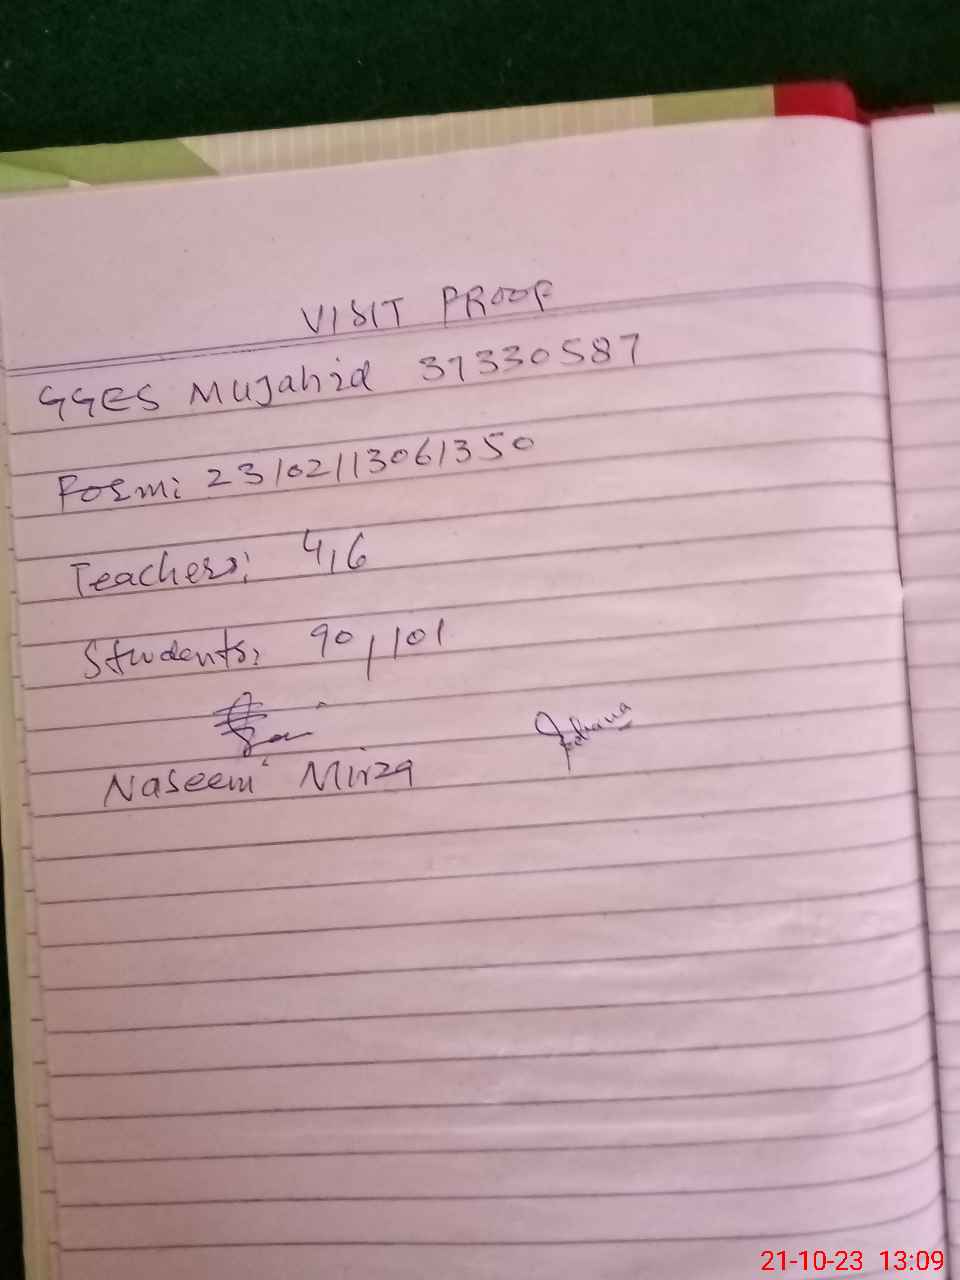 VISIT PROOF
GGES Mujahid 37330587
Form: 23102113061350
Teachers: 4,6
Students: 90,101
Naseem Mirza
21-10-23 13:09